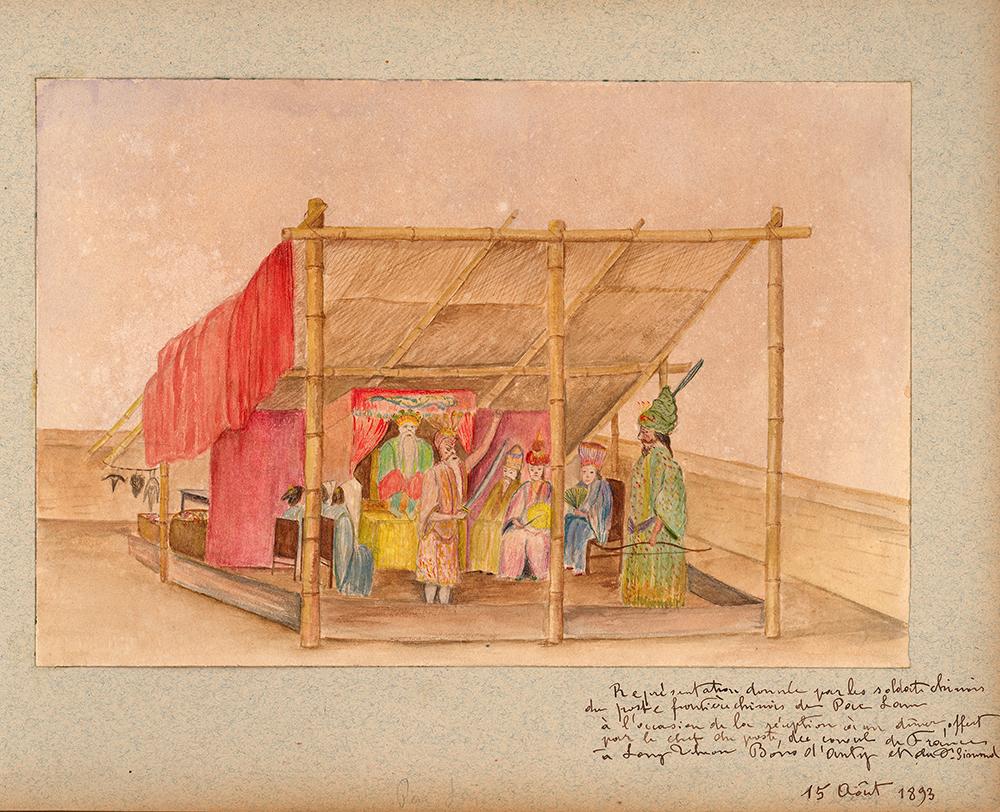 Représentation donnée par les soldats chinois
du poste frontière chinois de Pac Lam
à l'occasion de la réception à un dîner offert
par le chef du poste, des consul de France
à Long Tcheou Bons d'Anty et du Dr Simond
15 Août 1893